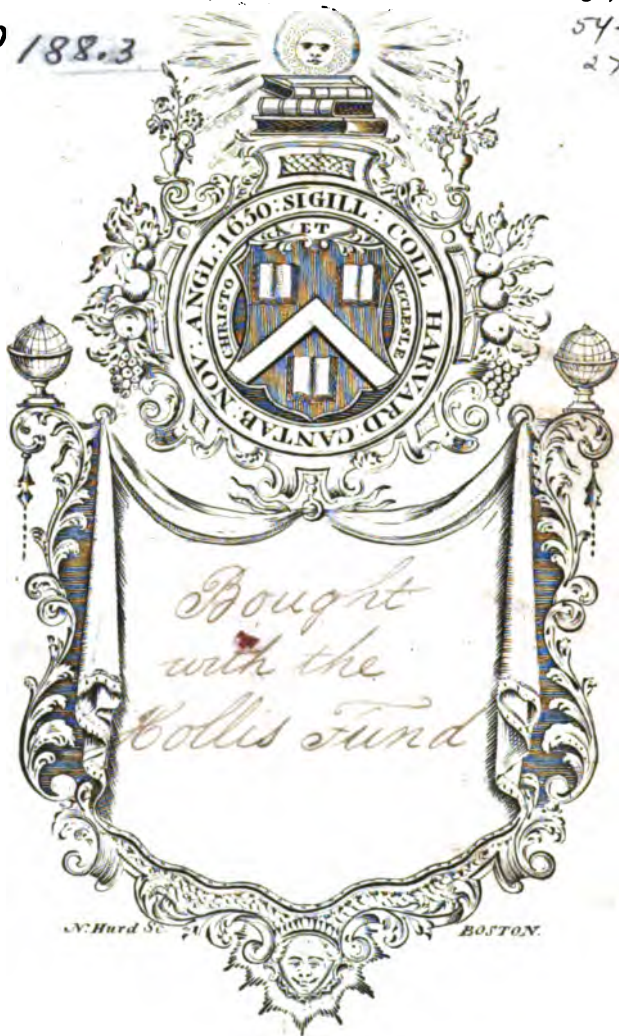 188.3
54-
27
SIGILL : COLL HARVARD : CANTAB : NOV : ANGL : 1650 :
CHRISTO ET ECCLESIÆ
Bought
with the
Hollis Fund
N. Hurd Sc.
BOSTON.